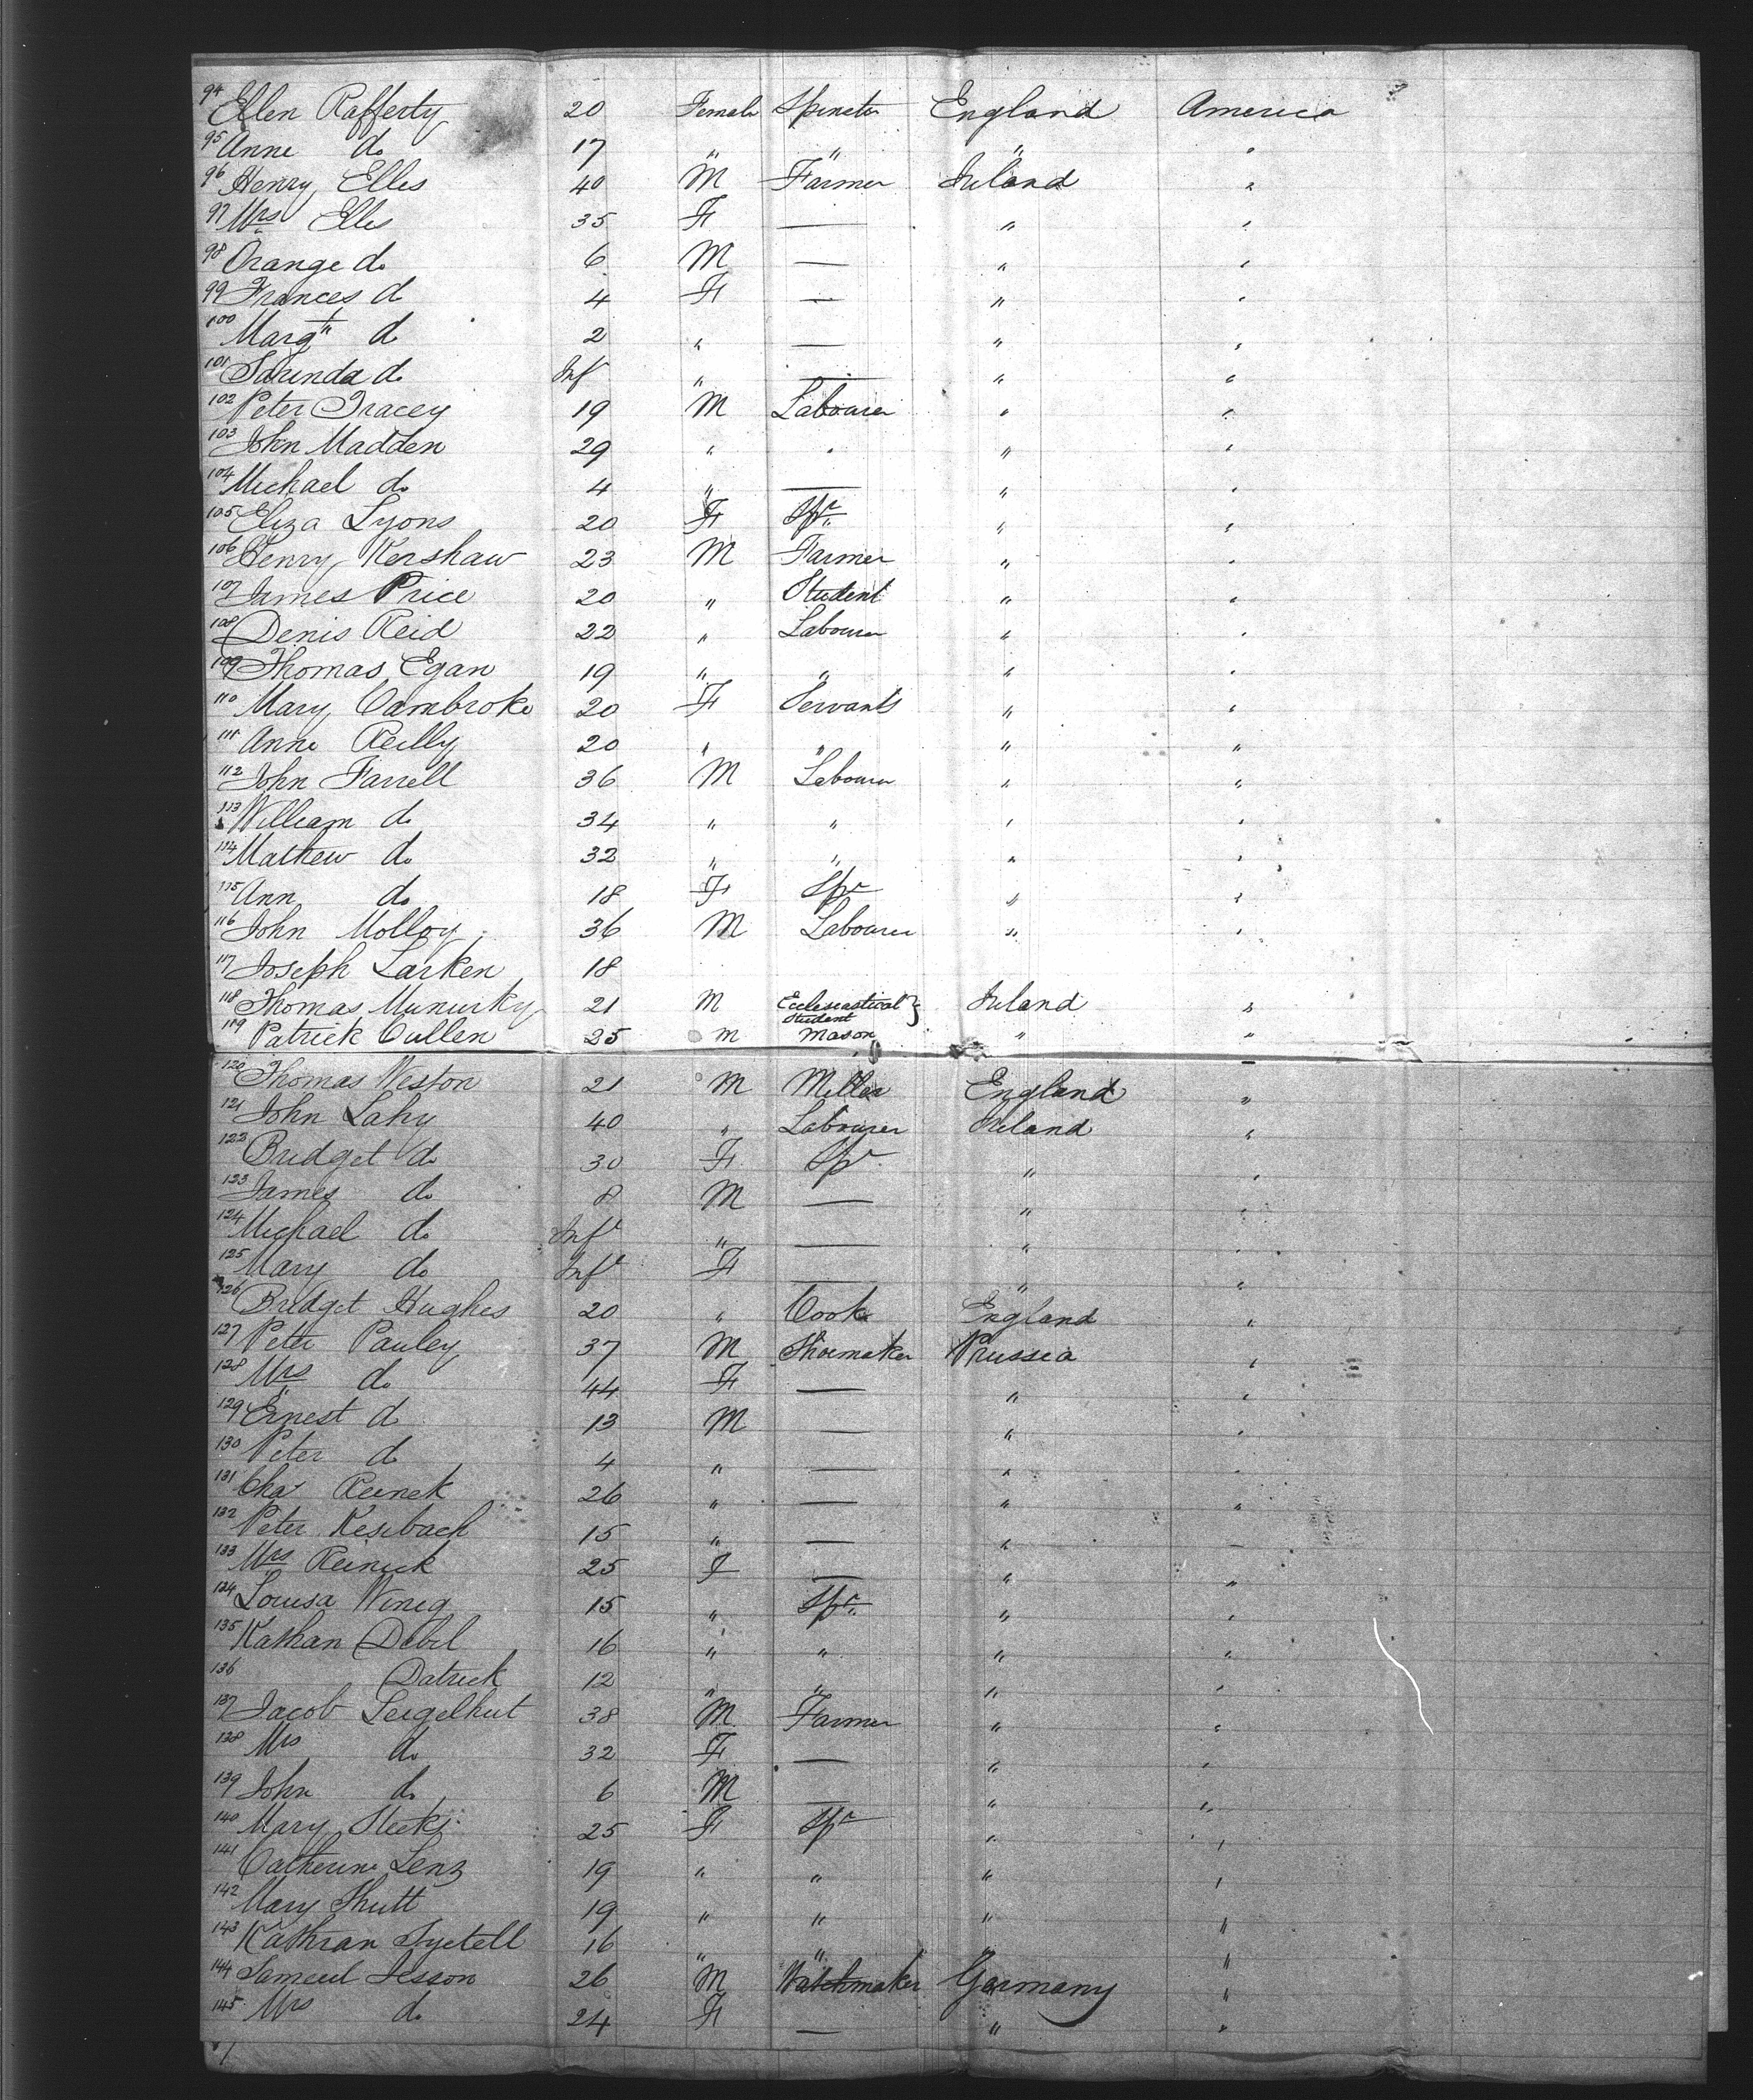 94 Ellen Rafferty 20 Female Spinster England America
95 Anne do 17 " " " "
96 Henry Elles 40 M Farmer Ireland "
97 Mrs Elles 35 F — " "
98 Orange do 6 M — " "
99 Frances do 4 F — " "
100 Margt do 2 " — " "
101 do Inft " — " "
102 Peter Tracey 19 M Labourer " "
103 John Madden 29 " " " "
104 Michael do 4 " — " "
105 Eliza Lyons 20 F Spr " "
106 Henry Kershaw 23 M Farmer " "
107 James Price 20 " Student " "
108 Denis Reid 22 " Labourer " "
109 Thomas Egan 19 " " " "
110 Mary Cambroke 20 F Servants " "
111 Anne Reilly 20 " " " "
112 John Farrell 36 M Labourer " "
113 William do 34 " " " "
114 Mathew do 32 " " " "
115 Ann do 18 F Spr " "
116 John Molloy 36 M Labourer " "
117 Joseph Larken 18
118 Thomas 21 M Ecclesiastical Student } Ireland "
119 Patrick Cullen 25 M Mason " "
120 Thomas Weston 21 M Miller England "
121 John Lahy 40 " Labourer Ireland "
122 Bridget do 30 F Spr " "
123 James do 8 M — " "
124 Michael do Inft " — " "
125 Mary do Inft F — " "
126 Bridget Hughes 20 " Cook England "
127 Peter Pauley 37 M Shoemaker Prussia "
128 Mrs do 44 F — " "
129 Ernest do 13 M — " "
130 Peter do 4 " — " "
131 Chas Reineck 26 " — " "
132 Peter Kesebach 15 " — " "
133 Mrs Reineck 25 F — " "
134 Louisa Wineg 15 " Spr " "
135 Kathan Debil 16 " " " "
136 Datrick 12 " " " "
137 Jacob Seigelhut 38 M Farmer " "
138 Mrs do 32 F — " "
139 John do 6 M — " "
140 Mary 25 F Spr " "
141 Catherine Lenz 19 " " " "
142 Mary Shutt 19 " " " "
143 Kathran 16 " " " "
144 Sameul Jesson 26 M Watchmaker Germany "
145 Mrs do 24 F — " "